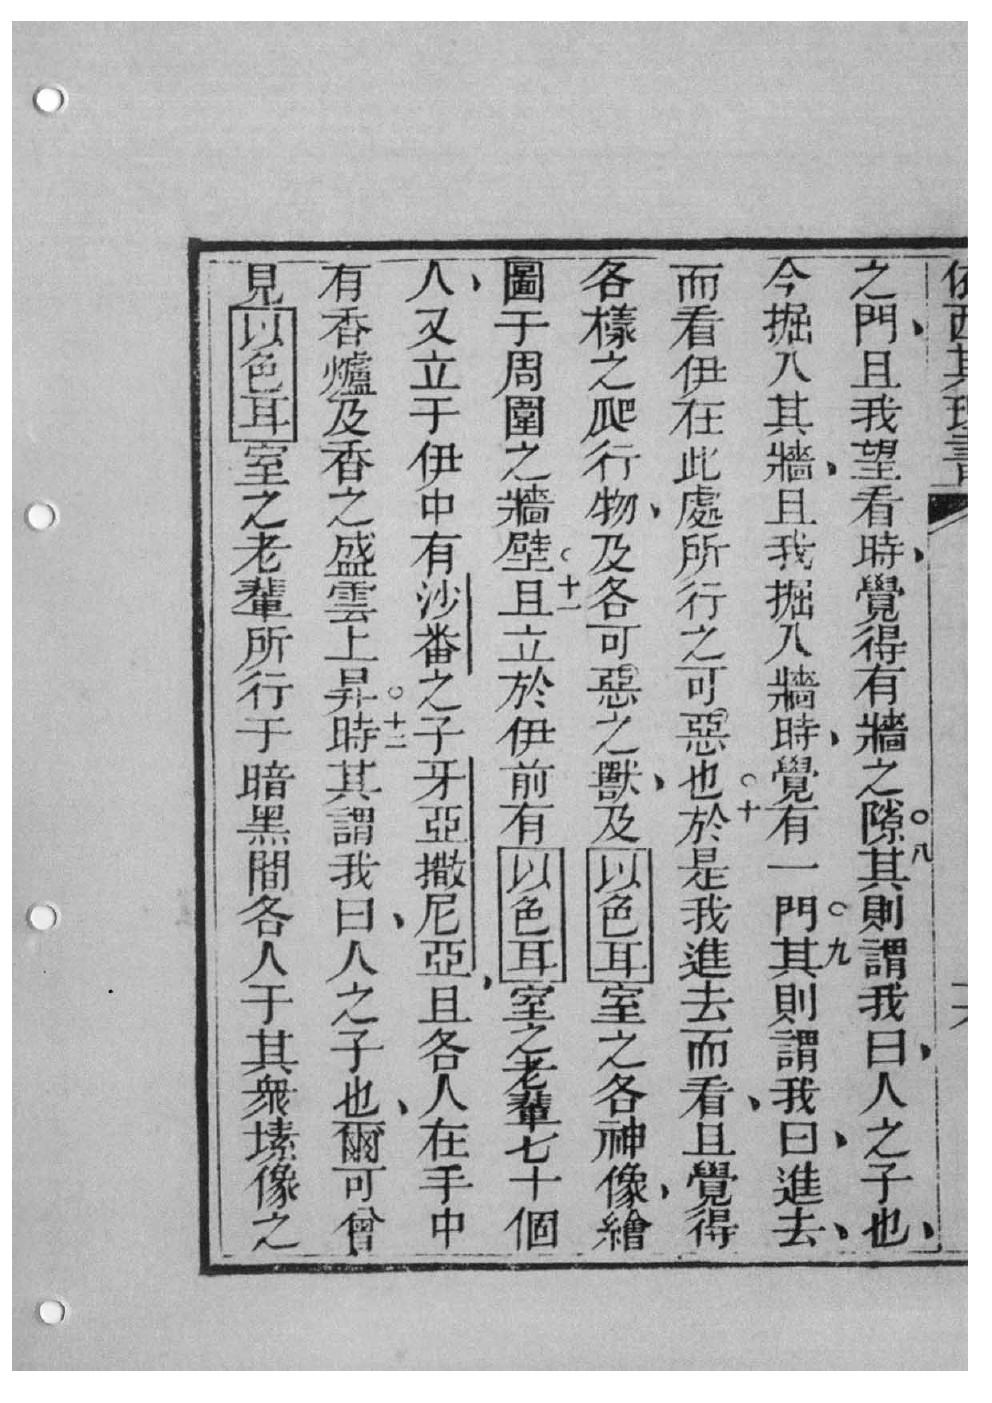 依西其理書
之門、且我望看時、覺得有牆之隙○八其則謂我曰、人之子也、
今掘入其牆、且我掘入牆時、覺有一門○九其則謂我曰、進去、
而看伊在此處所行之可惡也○十於是我進去而看、且覺得
各樣之爬行物、及各可惡之獸、及以色耳室之各神像、繪
圖于周圍之牆壁○十一且立於伊前有以色耳室之老輩七十個
人、又立于伊中有沙番之子牙亞撒尼亞、且各人在手中
有香爐及香之盛雲上昇○十二時其謂我曰、人之子也、爾可曾
見以色耳室之老輩所行于暗黑間各人于其衆塑像之